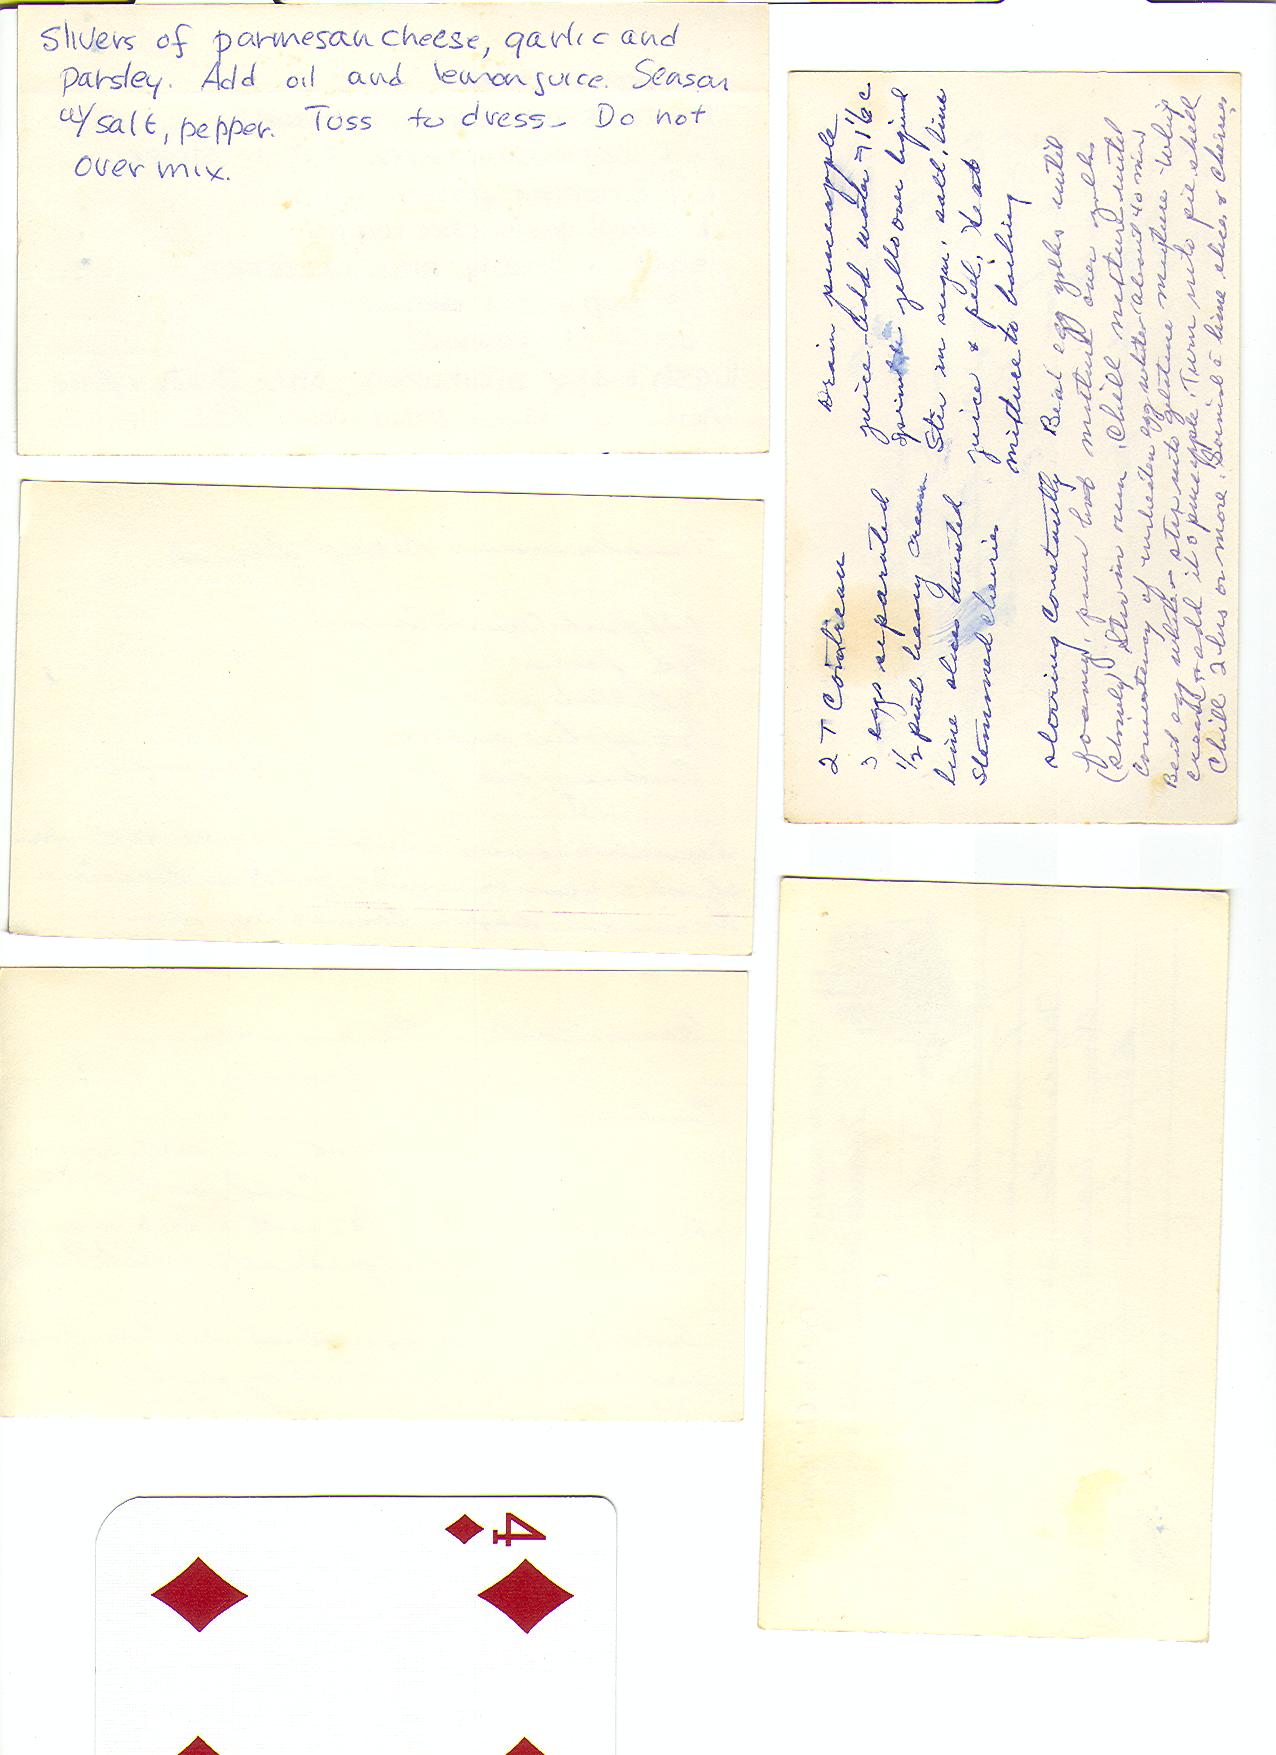 Slivers of parmesan cheese, garlic and
parsley. Add oil and lemon juice. Season
w/salt, pepper. Toss to dress. Do not
over mix.
2 T Cointreau
3 eggs separated
1/2 pint heavy cream
lime slices twisted
Stemmed cherries
Drain pineapple
juice - Add water = 1 1/6 c
Sprinkle jello over liquid
Stir in sugar, salt, lime
juice & peel, Heat
mixture to boiling
stirring constantly Beat egg yolks until
foamy, pour hot mixture over yolks
(slowly) Stir in rum. Chill mixture until
consistency of unbeaten egg whites about 40 min
Beat egg whites stir into gelatine mixture Whip
cream & add it & pineapple. Turn into pie shell
Chill 2 hrs or more. lime slices & cherries
4